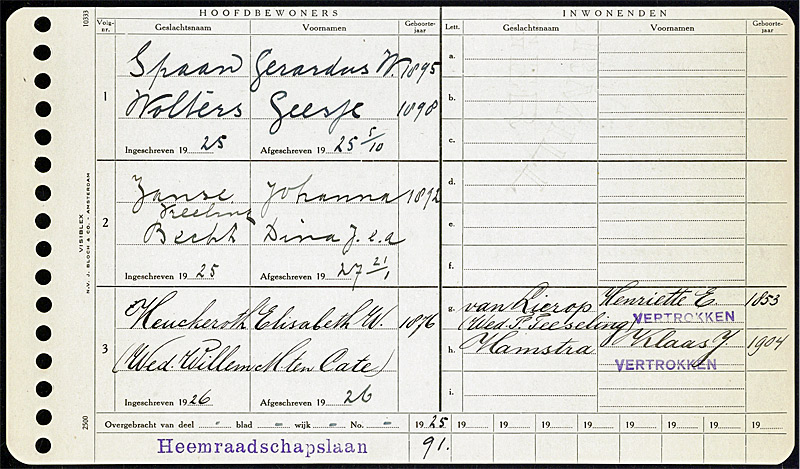 HOOFDBEWONERS INWONENDEN
Volg-nr. Geslachtsnaam Voornamen Geboorte-jaar Lett. Geslachtsnaam Voornamen Geboorte-jaar
10333
1
Spaan Gerardus W. 1895
Wolters Geesje 1898
Ingeschreven 19 25 Afgeschreven 19 25 5/10
a.
b.
c.
2
Janse Johanna 1892
Becht Dina J. e.a
Ingeschreven 19 25 Afgeschreven 19 27 21/1
d.
e.
f.
3
Heucheroth Elisabeth W. 1876
(Wed. Willem M. ten Cate)
Ingeschreven 19 26 Afgeschreven 19 26
g. van Lierop Henriette E. 1853
(Wed. P. Teeseling) VERTROKKEN
h. Hamstra Klaas J. 1904
VERTROKKEN
i.
VISIBLEX
N.V. J. BLOCH & CO. - AMSTERDAM
2500
Overgebracht van deel - blad - wijk - No. - 19 25 19 19 19 19 19 19 19 19
Heemraadschapslaan 91.